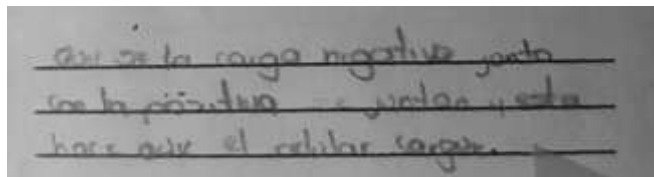 que la carga negativa junto
con la positiva se juntan y esto
hace que el celular cargue.